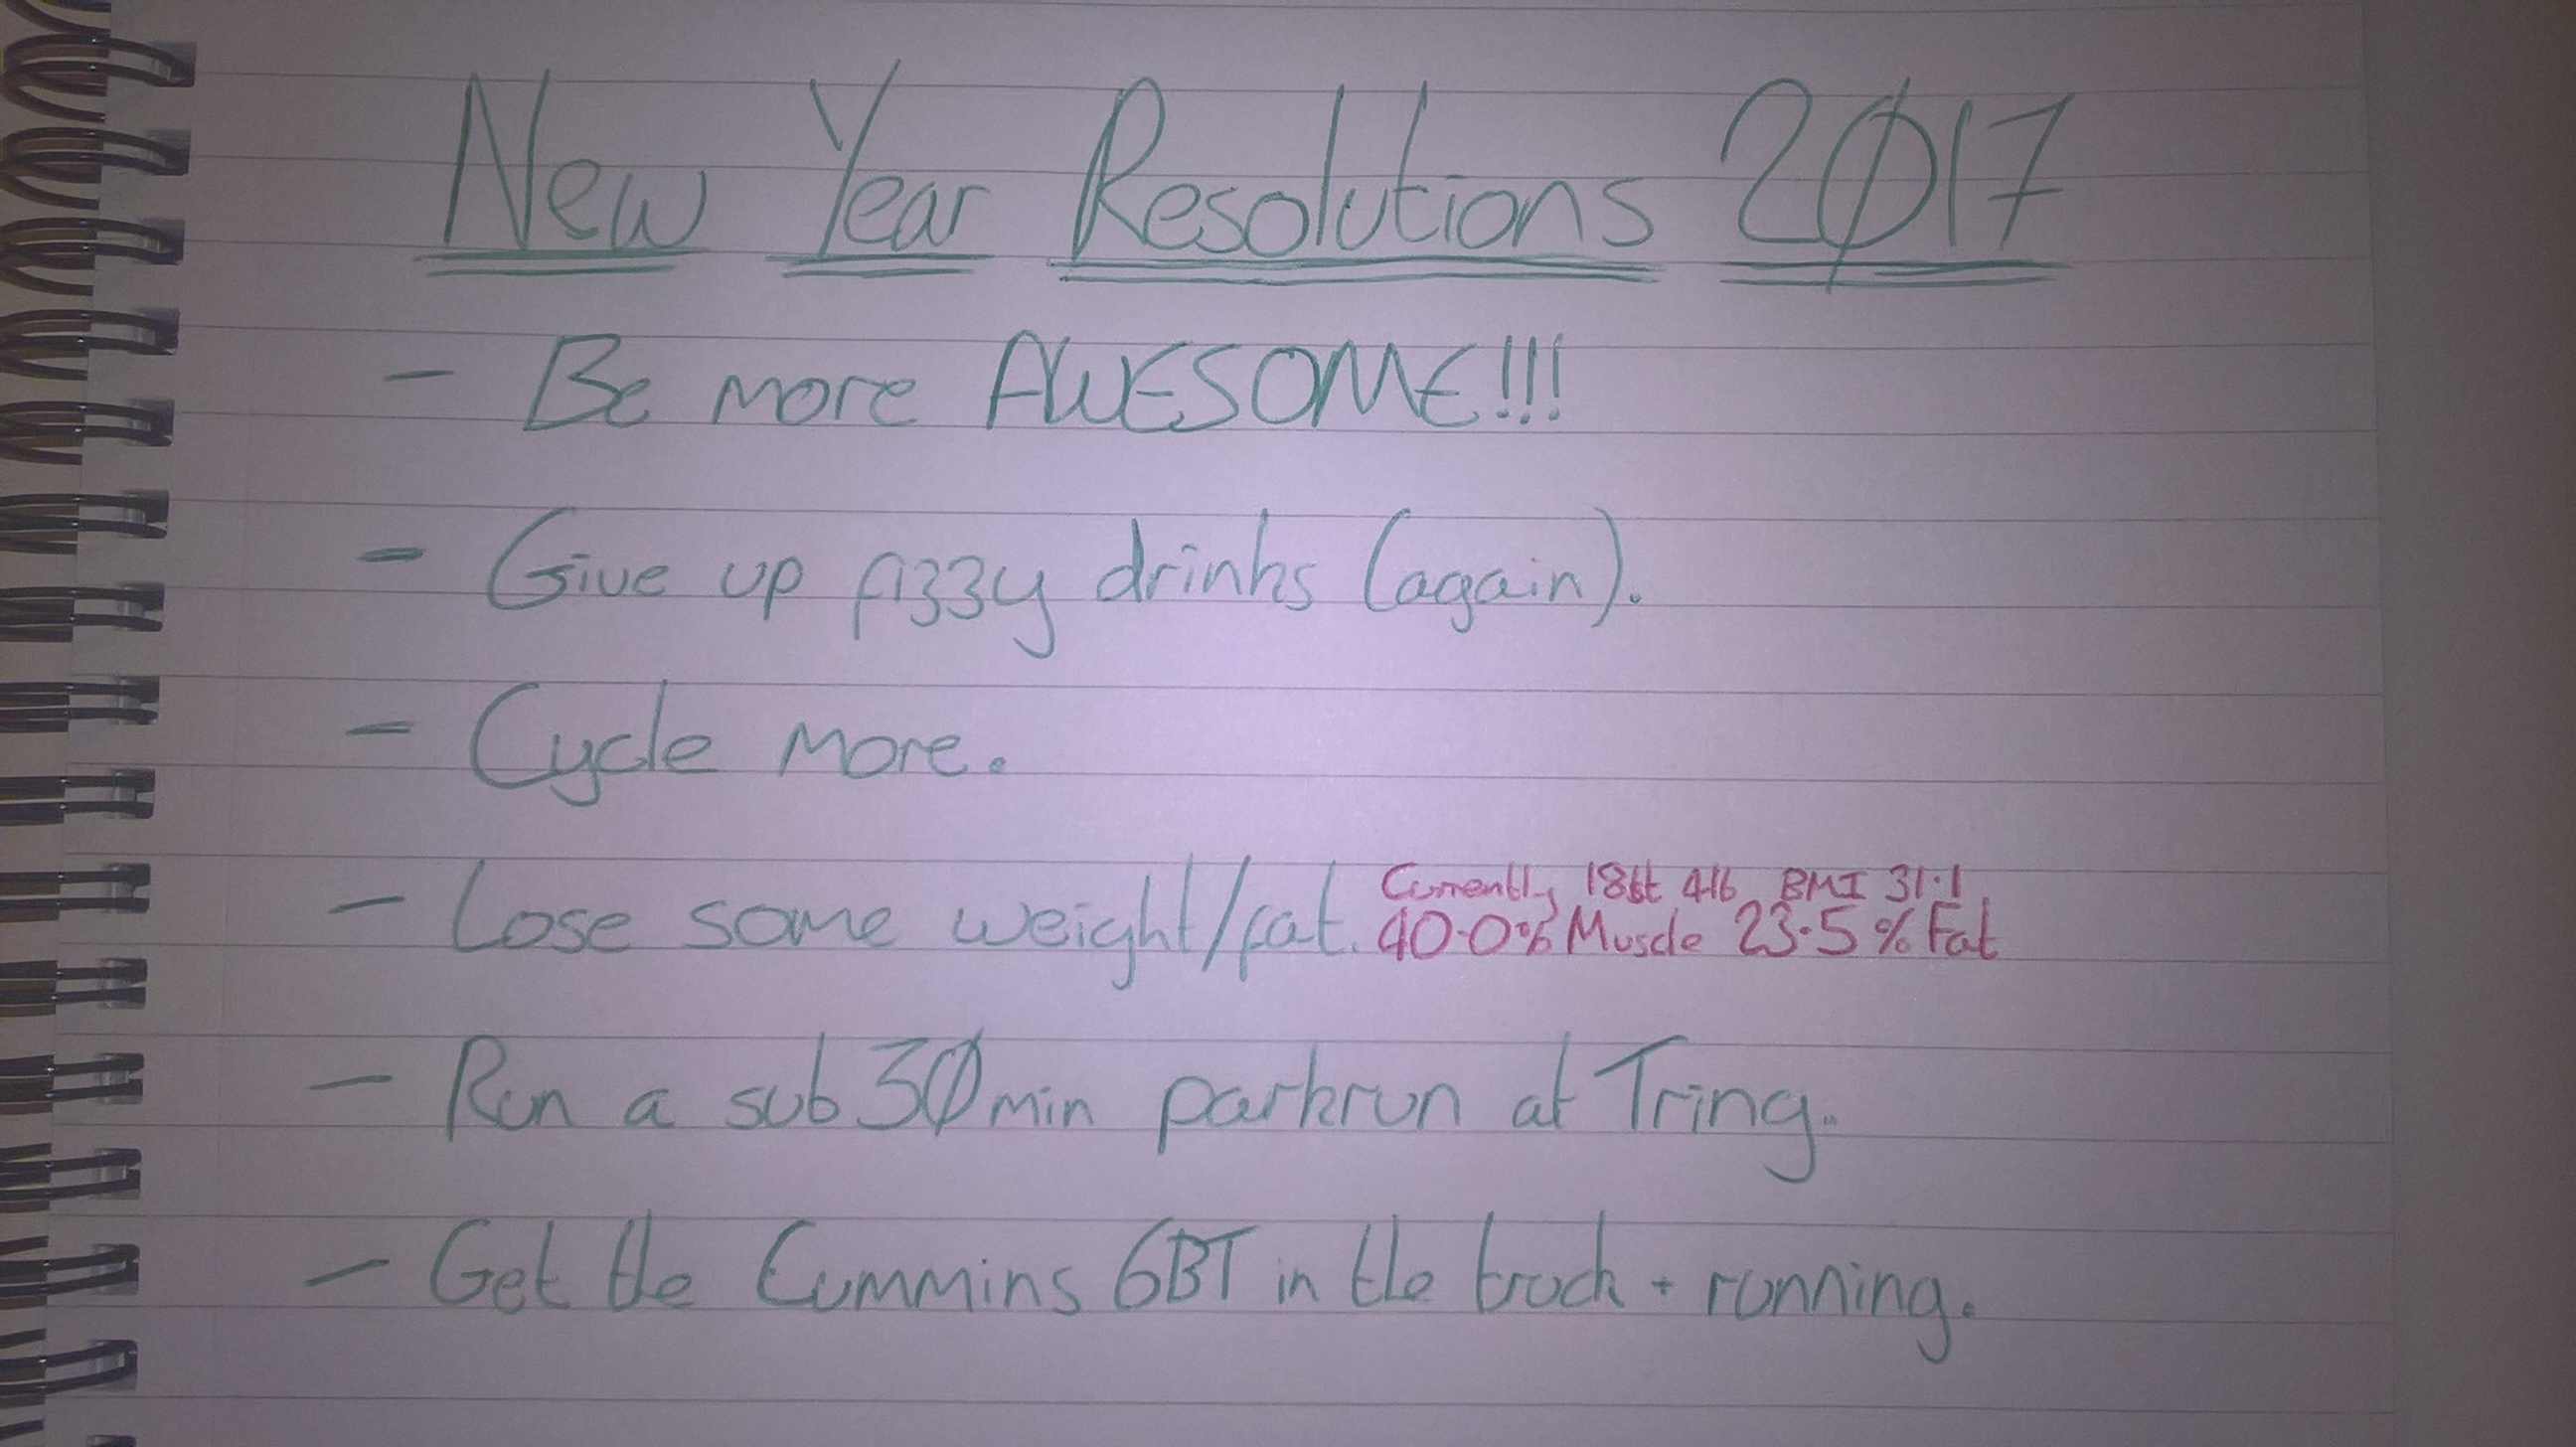 New Year Resolutions 2Ø17
- Be more AWESOME!!!
- Give up fizzy drinks (again).
- Cycle more.
- Lose some weight/fat. Currently 18st 4lb, BMI 31.1
40.0% Muscle 23.5% Fat
- Run a sub 3Ømin parkrun at Tring.
- Get the Cummins 6BT in the truck + running.